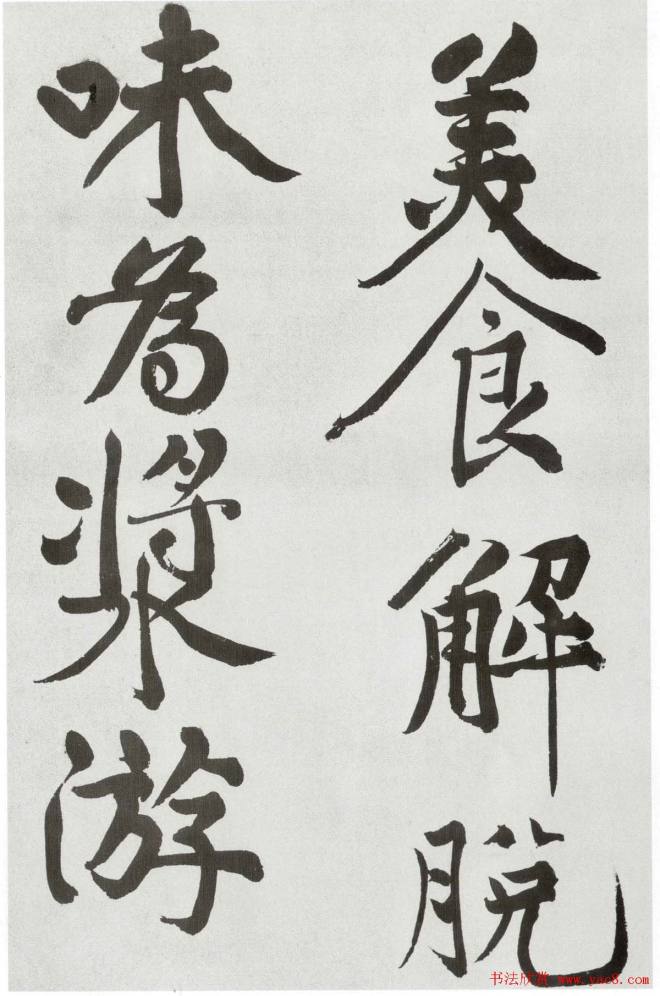 美食解脱
味為漿游
书法欣赏 www.yac8.com